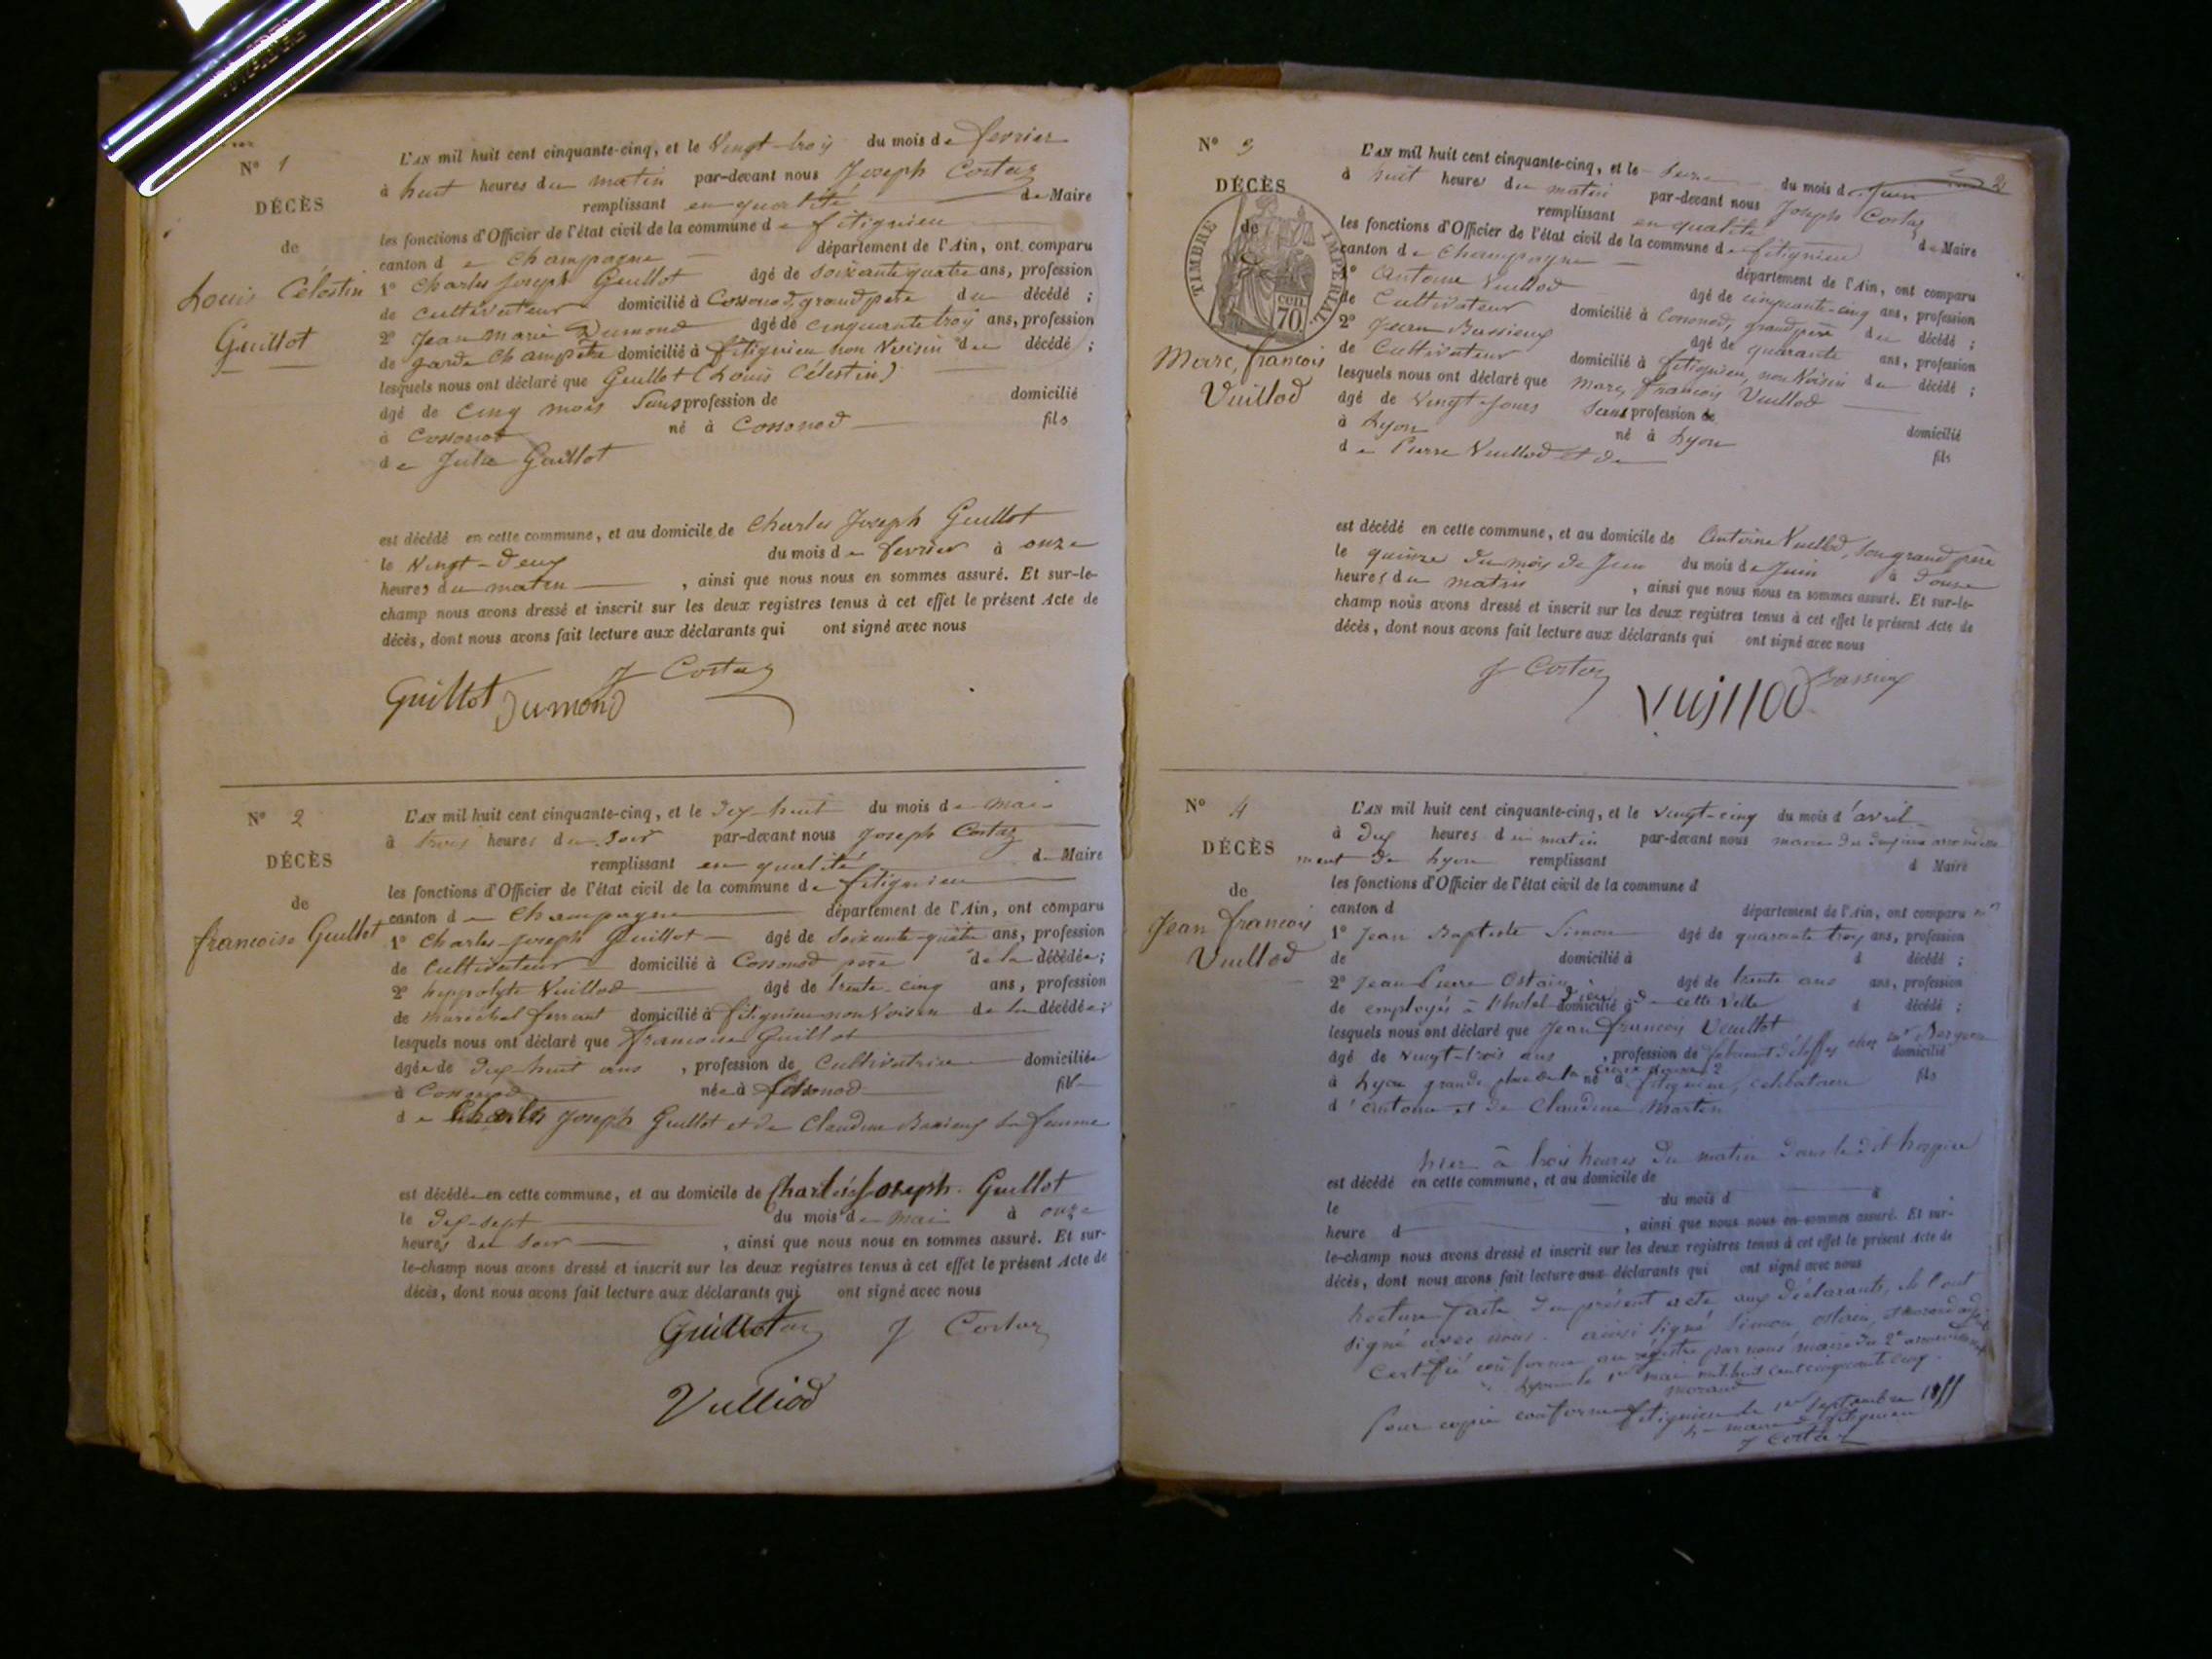 N° 1
DÉCÈS
de
Louis Célestin
Guillot
L'AN mil huit cent cinquante-cinq, et le Vingt-trois du mois de fevrier
à huit heures du matin par-devant nous Joseph Costaz
remplissant en qualité de Maire
les fonctions d'Officier de l'état civil de la commune de fitignieu
canton de Champagne département de l'Ain, ont comparu
1° Charles Joseph Guillot âgé de soixante quatre ans, profession
de cultivateur domicilié à Cossonod, grand père du décédé ;
2° Jean Marie Dumond âgé de cinquante trois ans, profession
de garde Champêtre domicilié à fitignieu non Voisin du décédé ;
lesquels nous ont déclaré que Guillot (Louis Célestin)
âgé de cinq mois Sans profession de domicilié
à Cossonod né à Cossonod fils
de Julie Guillot
est décédé en cette commune, et au domicile de Charles Joseph Guillot
le Vingt-Deux du mois de fevrier à onze
heures du matin , ainsi que nous nous en sommes assuré. Et sur-le-
champ nous avons dressé et inscrit sur les deux registres tenus à cet effet le présent Acte de
décès, dont nous avons fait lecture aux déclarants qui ont signé avec nous
J Costaz
Guillot Dumond
N° 2
DÉCÈS
de
francoise Guillot
L'AN mil huit cent cinquante-cinq, et le dix-huit du mois de mai
à trois heures du Soir par-devant nous Joseph Costaz
remplissant en qualité de Maire
les fonctions d'Officier de l'état civil de la commune de fitignieu
canton de Champagne département de l'Ain, ont comparu
1° Charles-Joseph Guillot âgé de Soixante-quatre ans, profession
de Cultivateur domicilié à Cossonod père de la décédée ;
2° hippolyte Vuillod âgé de trente-cinq ans, profession
de maréchal ferrant domicilié à fitignieu non Voisin de la décédée ;
lesquels nous ont déclaré que francoise Guillot
âgée de dix huit ans , profession de Cultivatrice domiciliée
à Cossonod née à Cossonod fille
de Charles Joseph Guillot et de Claudine Bassieux sa femme
est décédée en cette commune, et au domicile de Charles Joseph Guillot
le dix-sept du mois de mai à onze
heures du Soir , ainsi que nous nous en sommes assuré. Et sur-
le-champ nous avons dressé et inscrit sur les deux registres tenus à cet effet le présent Acte de
décès, dont nous avons fait lecture aux déclarants qui ont signé avec nous
Guillot J Costaz
Vulliod
2
N° 3
DÉCÈS
de
TIMBRE IMPERIAL
cen. 70
Marc, francois
Vuillod
L'AN mil huit cent cinquante-cinq, et le du mois de Juin
à huit heures du matin par-devant nous Joseph Costaz
remplissant en qualité de Maire
les fonctions d'Officier de l'état civil de la commune de fitignieu
canton de Champagne département de l'Ain, ont comparu
1° Antoine Vuillod âgé de cinquante-cinq ans, profession
de Cultivateur domicilié à Cossonod, grand père du décédé ;
2° Jean Bassieux âgé de quarante ans, profession
de Cultivateur domicilié à fitignieu, non Voisin du décédé ;
lesquels nous ont déclaré que Marc, francois Vuillod
âgé de Vingt-Jours Sans profession de domicilié
à Lyon né à Lyon fils
de Pierre Vuillod et de
est décédé en cette commune, et au domicile de Antoine Vuillod, Son grand père
le quinze du mois de Juin du mois de Juin à douze
heures du matin , ainsi que nous nous en sommes assuré. Et sur-le-
champ nous avons dressé et inscrit sur les deux registres tenus à cet effet le présent Acte de
décès, dont nous avons fait lecture aux déclarants qui ont signé avec nous
J Costaz Bassieux
Vuillod
N° 4
DÉCÈS
de
Jean francois
Vuillod
L'AN mil huit cent cinquante-cinq, et le vingt-cinq du mois d'avril
à dix heures du matin par-devant nous maire du deuxième arrondisse
ment de Lyon remplissant d Maire
les fonctions d'Officier de l'état civil de la commune d
canton d département de l'Ain, ont comparu
1° Jean Baptiste Simon âgé de quarante trois ans, profession
de domicilié à d décédé ;
2° Jean Pierre Ostain âgé de trente ans ans, profession
de employés à l'hotel Dieu domicilié à de cette Ville d décédé ;
lesquels nous ont déclaré que Jean francois Vuillot
âgé de vingt-trois ans , profession de fabricant d'étoffes chez domicilié
à Lyon grande place de la Croix Rousse 2 né à fitignieu, célibataire fils
d'Antoine et de Claudine Martin
hier à trois heures du matin dans le dit hospice
est décédé en cette commune, et au domicile de
le du mois d à
heure d , ainsi que nous nous en sommes assuré. Et sur-
le-champ nous avons dressé et inscrit sur les deux registres tenus à cet effet le présent Acte de
décès, dont nous avons fait lecture aux déclarants qui ont signé avec nous
Lecture faite du présent acte aux déclarants, ils l'ont
signé avec nous. ainsi signé Simon, ostain, Morand
Certifié conforme au registre par nous maire du 2e arrondissement
Lyon le 1er mai mil huit cent cinquante cinq.
morand
Pour copie conforme fitignieu le 1er Septembre 1855
le maire de fitignieu
J Costaz